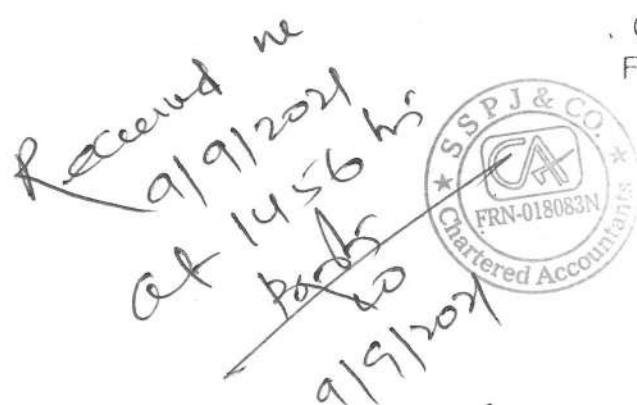 Received
9/9/2021
at 1456 hrs
9/9/2021
SSPJ & CO.
CA
FRN-018083N
Chartered Accountants
F